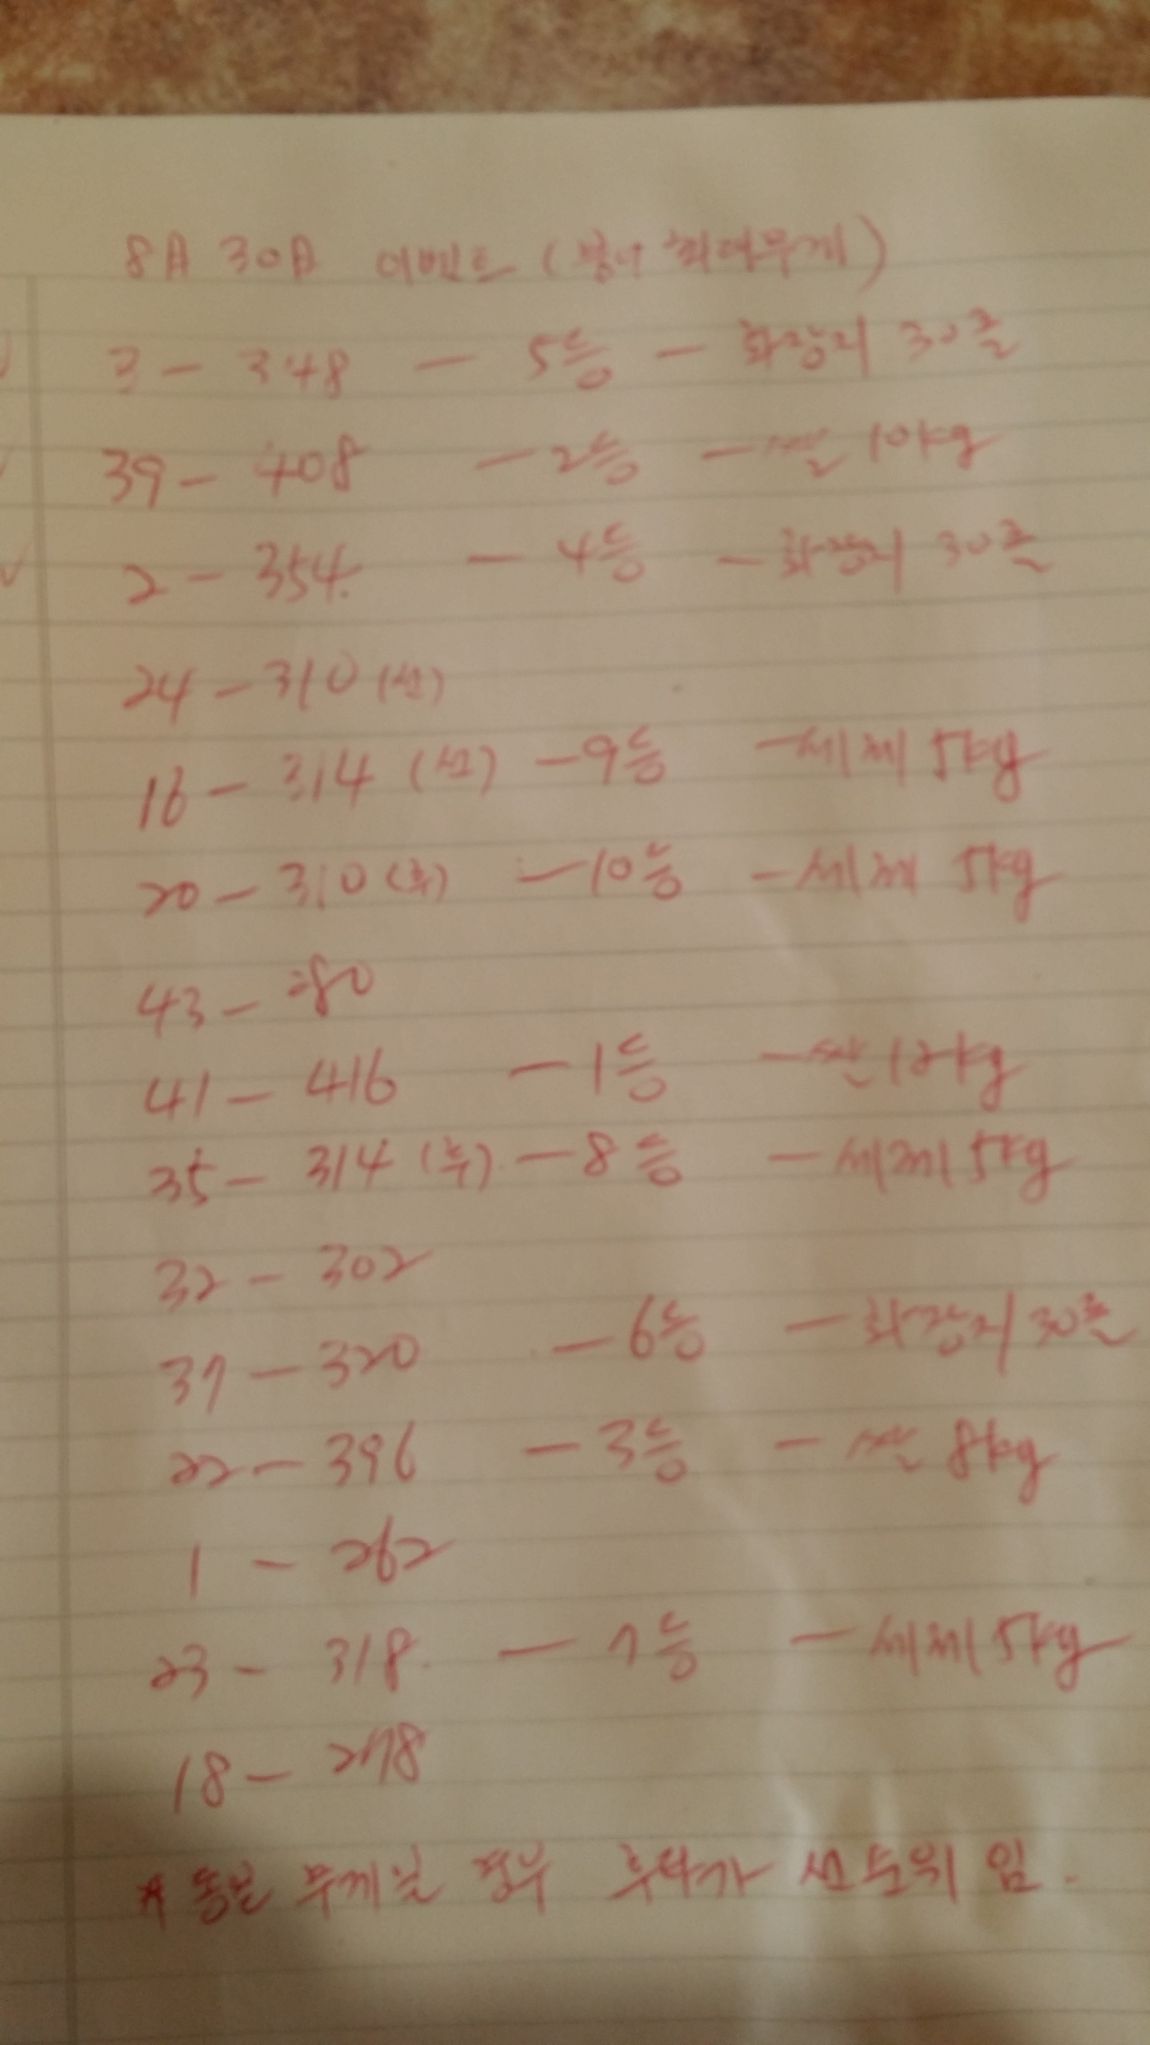 8月 30日 이벤트 (붕어 최대무게)
3 - 348 - 5등 - 화장지 30롤
39 - 408 - 2등 - 쌀 10kg
2 - 354. - 4등 - 화장지 30롤
24 - 310 (선)
16 - 314 (선) - 9등 - 세제 5kg
20 - 310 (후) - 10등 - 세제 5kg
43 - 280
41 - 416 - 1등 - 쌀 12kg
35 - 314 (후) - 8등 - 세제 5kg
32 - 302
37 - 320 - 6등 - 화장지 30롤
22 - 396 - 3등 - 쌀 8kg
1 - 262
23 - 318. - 7등 - 세제 5kg
18 - 278
* 동일 무게일 경우 후자가 선순위 임.